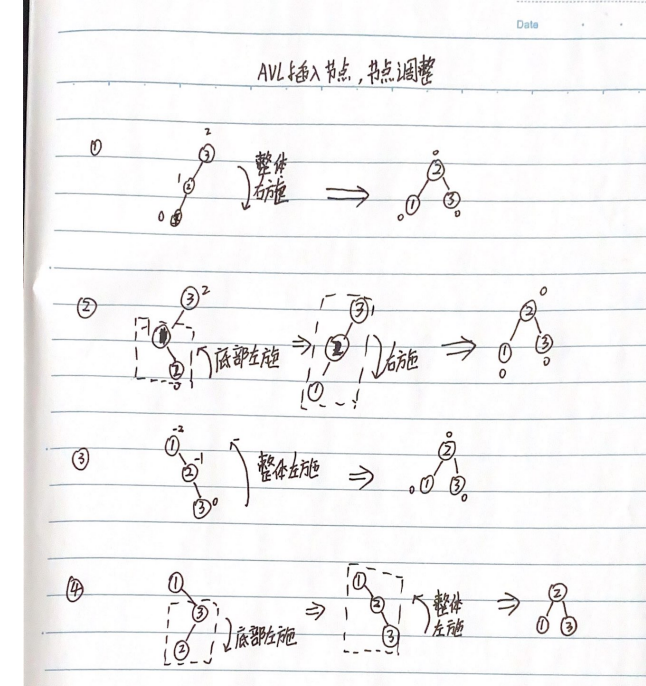 Date
AVL插入节点,节点调整
① 2 ③ 1 ② 0 整体右旋 ⇒ 0 ② 0 ① ③ 0
② ③ 2 -1 ① ② 0 底部左旋 ⇒ ③ 1 ② ① 右旋 ⇒ 0 ② ① 0 ③ 0
③ -2 ① ② -1 ③ 0 整体左旋 ⇒ 0 ② 0 ① ③ 0
④ ① ③ ② 底部左旋 ⇒ ① ② ③ 整体左旋 ⇒ ② ① ③